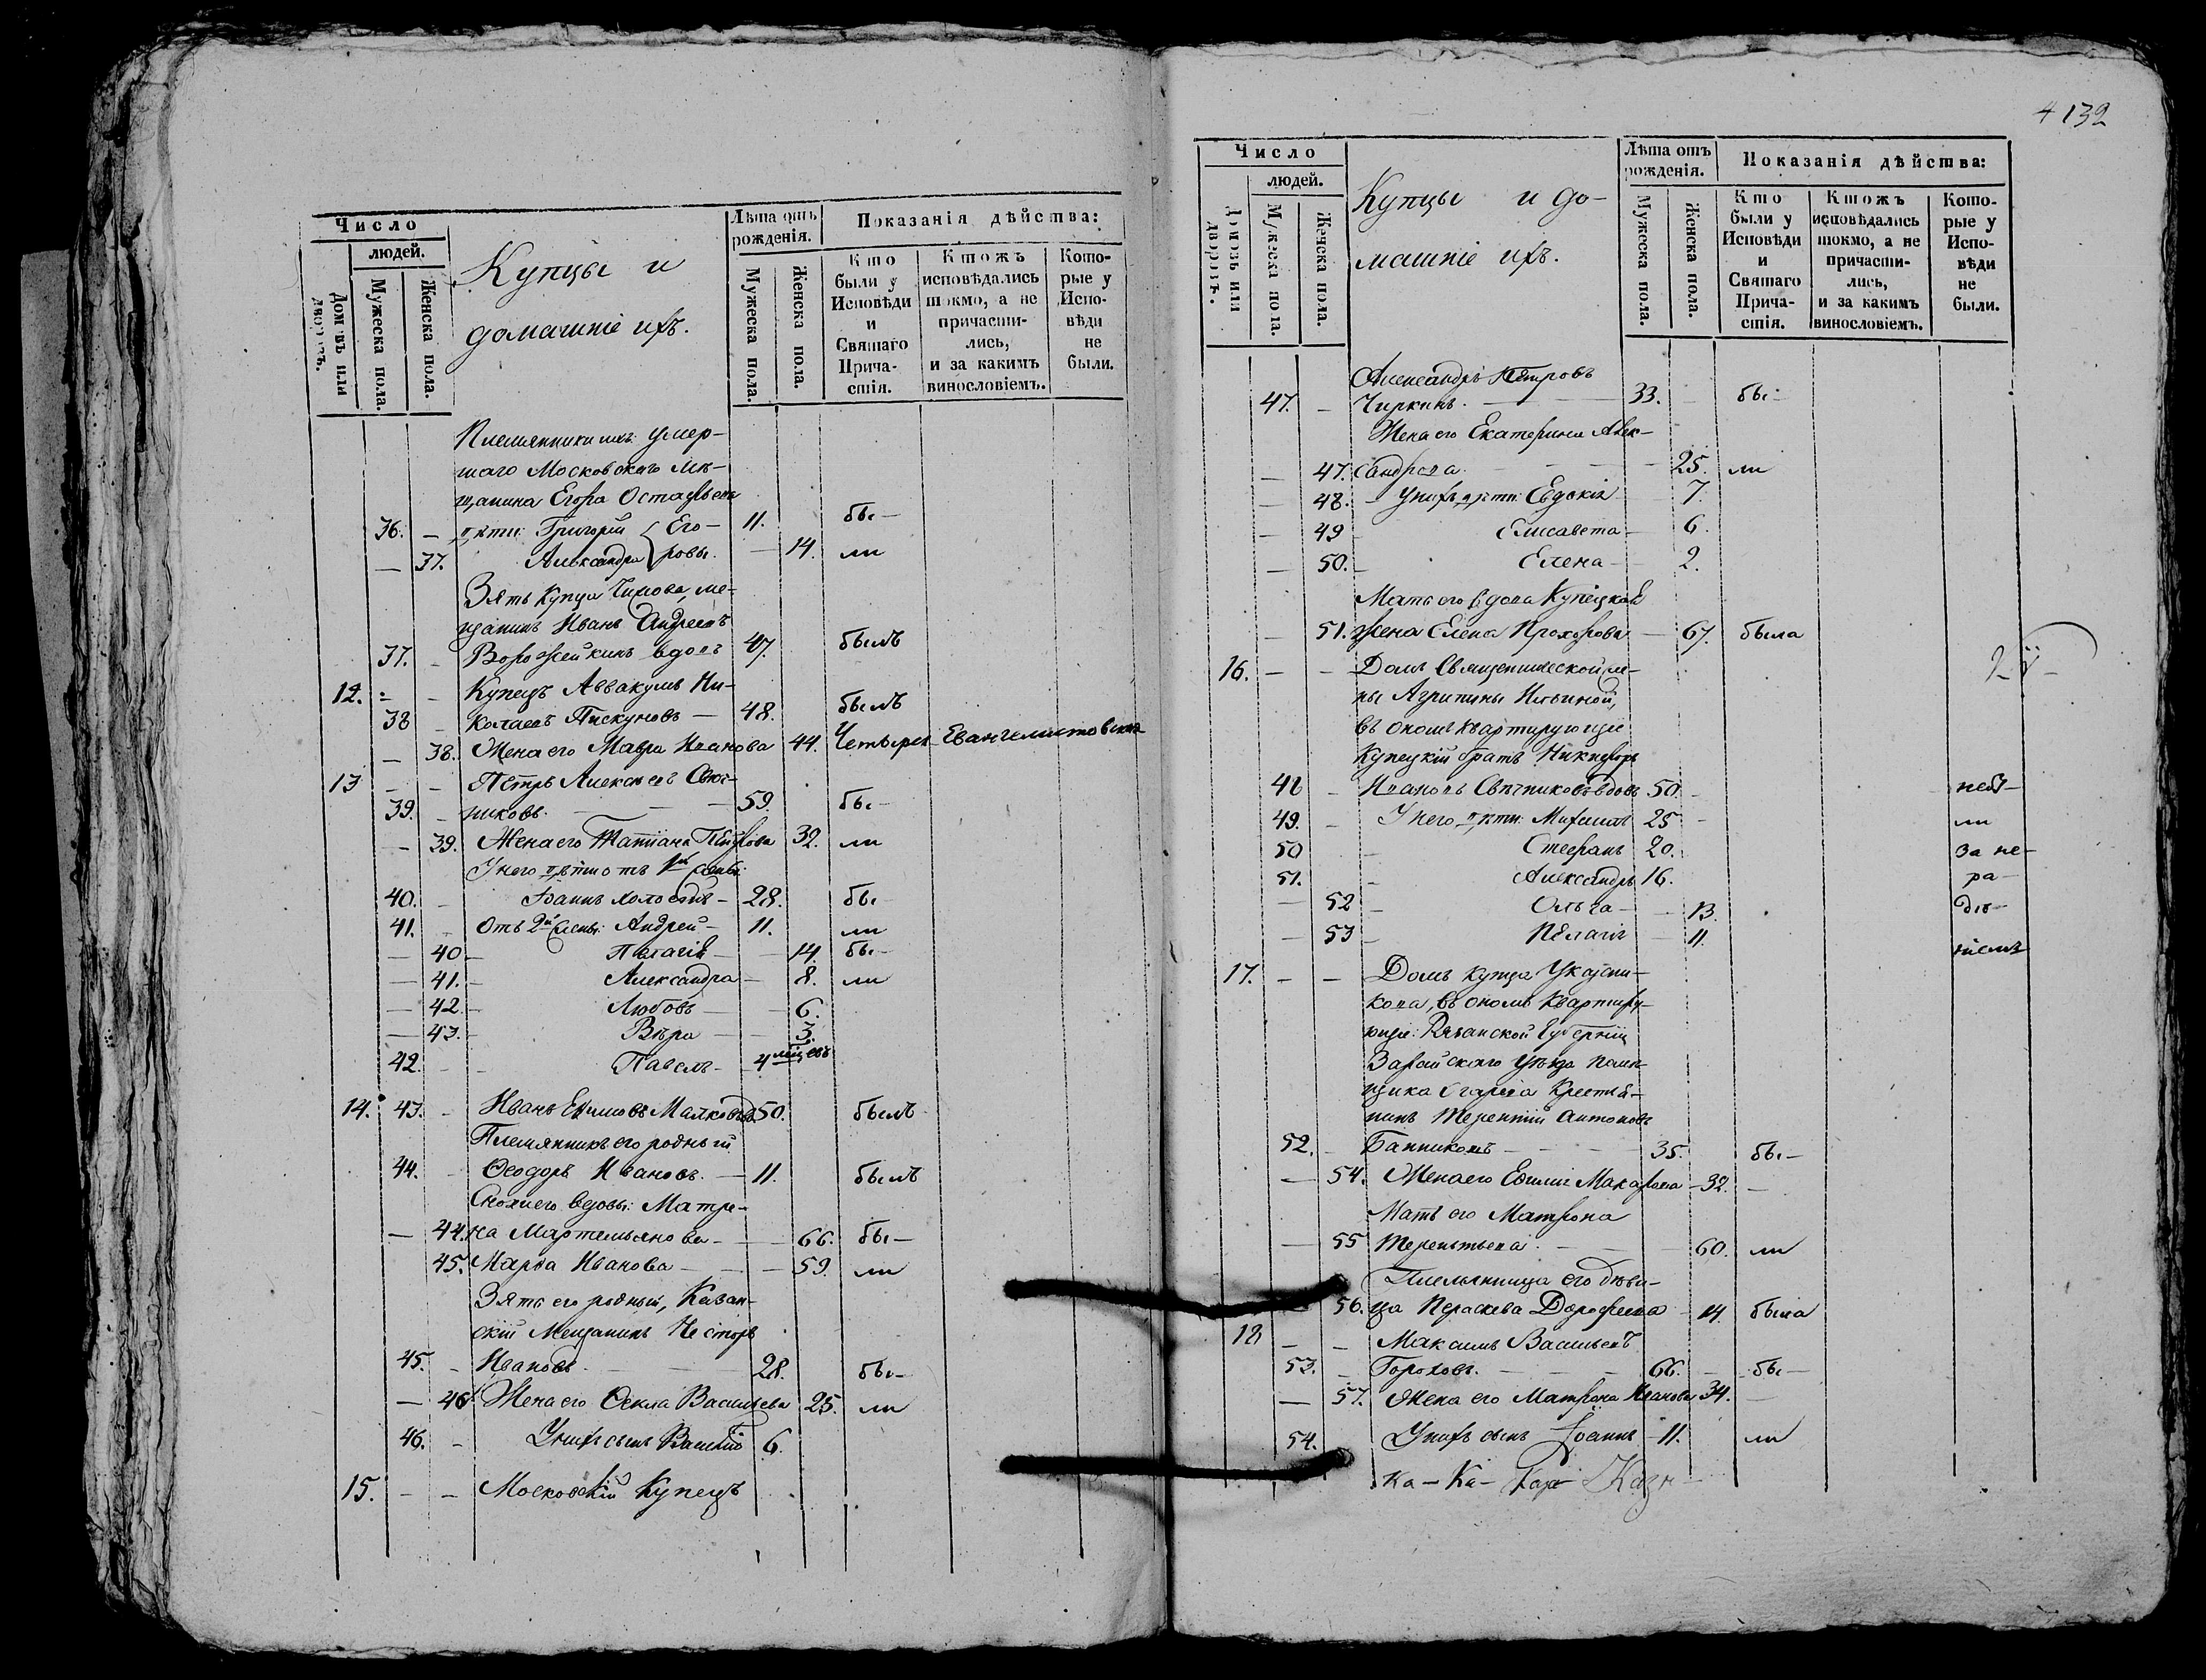 Число
людей.
Домовъ или дворовъ.
Мужеска пола.
Женска пола.
Купцы и
домашніе ихъ.
Лѣта отъ
рожденія.
Мужеска пола.
Женска пола.
Показанія дѣйства:
Кто
были у
Исповѣди
и
Святаго
Прича-
стія.
Ктожъ
исповѣдались
токмо, а не
причасти-
лись,
и за какимъ
винословіемъ.
Кото-
рые у
Испо-
вѣди
не
были.
Племянники ихъ умер-
шаго Московскаго мѣ-
щанина Егора Остафьева
36. – дѣти: Григорій { Его- 11. бы-
– 37. Александра { ровы. – 14. ли
Зять Купца мѣ-
щанинъ Иванъ Андреевъ
37. – Ворожейкинъ вдовъ 47. былъ
12. – – Купецъ Аввакумъ Ни-
38 – колаевъ Пискуновъ – 48. былъ
– 38. Жена его Мавра Иванова 44. Четырех-Евангелистовской
13 – – Петръ Алексѣевъ
39. – никовъ. – 59. бы-
– 39. Жена его Татіана Петрова 32. ли
У него дѣти отъ 1й жены:
40. – Іоаннъ холостъ – 28. бы-
41. – Отъ 2й жены: Андрей – 11. ли
– 40 – Пелагія – 14. бы-
– 41. – Александра – 8. ли
– 42 – Любовь – 6.
– 43. – Вѣра – 3.
42. – – Павелъ – 4 мѣсяцевъ
14. 43. – Иванъ Ефимовъ 50. былъ
Племянникъ его родный
44. – Ѳеодоръ Ивановъ. – 11. былъ
Снохи его вдовы: Матре-
– 44. на Мартемьянова – – 66. бы-
45. Марѳа Иванова – – 59. ли
Зять его родный, Казан-
скій Мещанинъ Несторъ
45. – Ивановъ. – 28. бы-
– 46 Жена его Ѳекла Васильева 25. ли
46. – У нихъ сынъ Василій 6.
15. – – Московскій Купецъ
4 132
Число
людей.
Домовъ или дворовъ.
Мужеска пола.
Женска пола.
Купцы и до-
машніе ихъ.
Лѣта отъ
рожденія.
Мужеска пола.
Женска пола.
Показанія дѣйства:
Кто
были у
Исповѣди
и
Святаго
Прича-
стія.
Ктожъ
исповѣдались
токмо, а не
причасти-
лись,
и за какимъ
винословіемъ.
Кото-
рые у
Испо-
вѣди
не
были.
Александръ Петровъ
47. – Чиркинъ. – 33. – бы-
Жена его Екатерина Алек-
– 47. сандрова – 25. ли
– 48. – У нихъ дѣти: Евдокія – 7.
– 49 – Елисавета – 6.
– 50. – Елена – 2.
Мать его вдова Купецкая
– 51. жена Елена Прохорова – 67. была
16. – – Домъ Священнической же-
ны Агрипины Ильиной,
въ ономъ квартирующіе
Купецкій братъ Никифоръ
48 – Ивановъ Свѣчниковъ вдовъ 50. – небы-
49. – У него дѣти: Михаилъ 25 – ли
50 – Стефанъ 20. за не-
51. – Александръ 16. ра-
– 52 – Ольга – 13. дѣ-
– 53 – Пелагія – 11. ніемъ
17. – – Домъ купца
кова, въ ономъ квартиру-
ющіе: Рязанской Губерніи
Зарайскаго Уѣзда помѣ-
щика Крестья-
нинъ Терентій Антоновъ
52. – – 35. бы-
– 54. Жена его Евѳимія Макарова – 32. –
Мать его Матрона
– 55 Терентьева. – 60. ли
Племянница его дѣви-
– 56. ца Параскева Дорофеева – 14. была
18 – – Максимъ Васильевъ
53. – Гороховъ. – 66. – бы-
– 57. Жена его Матрона Иванова 34. –
54. У нихъ сынъ Іоаннъ – 11. ли
Ка – Ка –